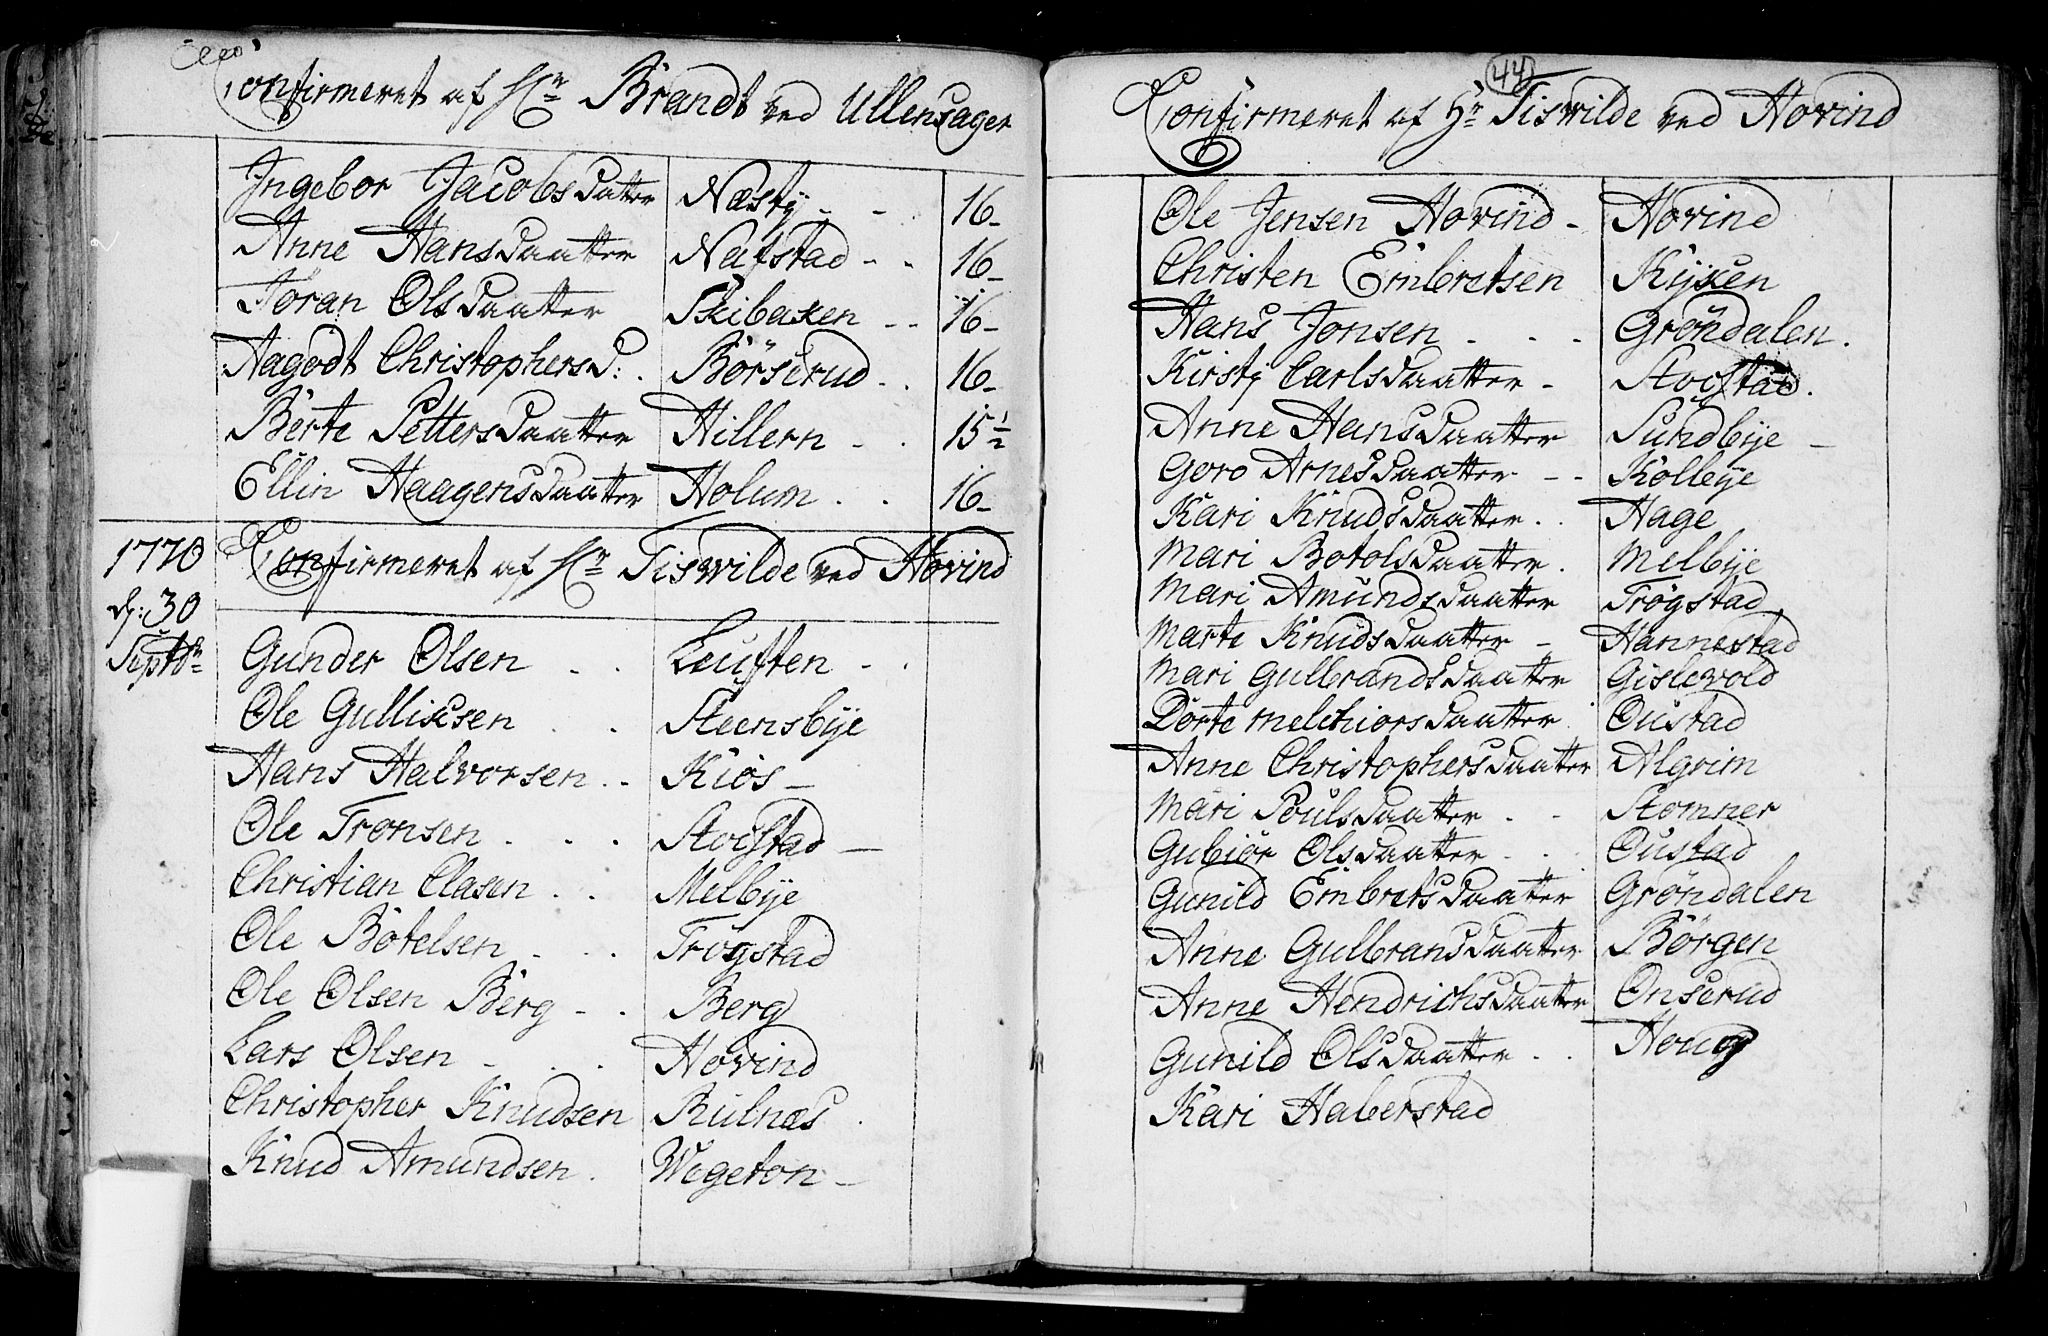 Confirmeret af Hr Brandt ved Ullensager
Ingebor Jacobsdatter Næsty - - 16-
Anne Hansdaatter Nafstad - - 16-
Joran Olsdaatter Skibaken - - 16-
Aagodt Christophersd: . Börserud - . 16-
Berte Pettersdaatter Hillern - . 15 1/2
Ellin Haagensdaatter Holum . . 16-
1770 Confirmeret af Hr Tiswilde ved Hovind
d: 30
Septbr
Gunder Olsen - . Leuften - .
Ole Gullicsen . . Steensbÿe
Hans Halvorsen . - Kiös -
Ole Tronsen . - . Stocstad -
Christian Clasen . . Melbÿe
Ole Botelsen - . . Trögstad
Ole Olsen Berg - . Berg
Lars Olsen - . . Hovind
Christopher Knudsen Rulnæs .
Knud Amundsen . Wegeton -
44
Confirmeret af Hr Tiswilde ved Hovind
Ole Jensen Hovind - Hovind
Christen Embretsen Kÿxen
Hans Jonsen - - - Gröndalen .
Kirsty Carlsdaatter - Stocstad .
Anne Hansdaatter Sundbÿe -
Goro Arnesdaatter - - Kollebÿe
Kari Knudsdaatter . . Hage
Mari Botolsdaatter . Melbÿe
Mari Amundsdaatter Trögstad
Marte Knudsdaatter - Hannestad
Mari Gulbrandsdaatter Gislevold
Dorte Melchiorsdaatter Oustad
Anne Christophersdaatter Algrim
Mari Poulsdaatter . - Stomner
Gubiör Olsdaatter - . Oustad
Gunild Embretsdaatter Gröndalen
Anne Gulbransdaatter Börgen
Anne Hendrichsdaatter Onserud
Gunild Olsdaatter . . Houg
Kari Haberstad